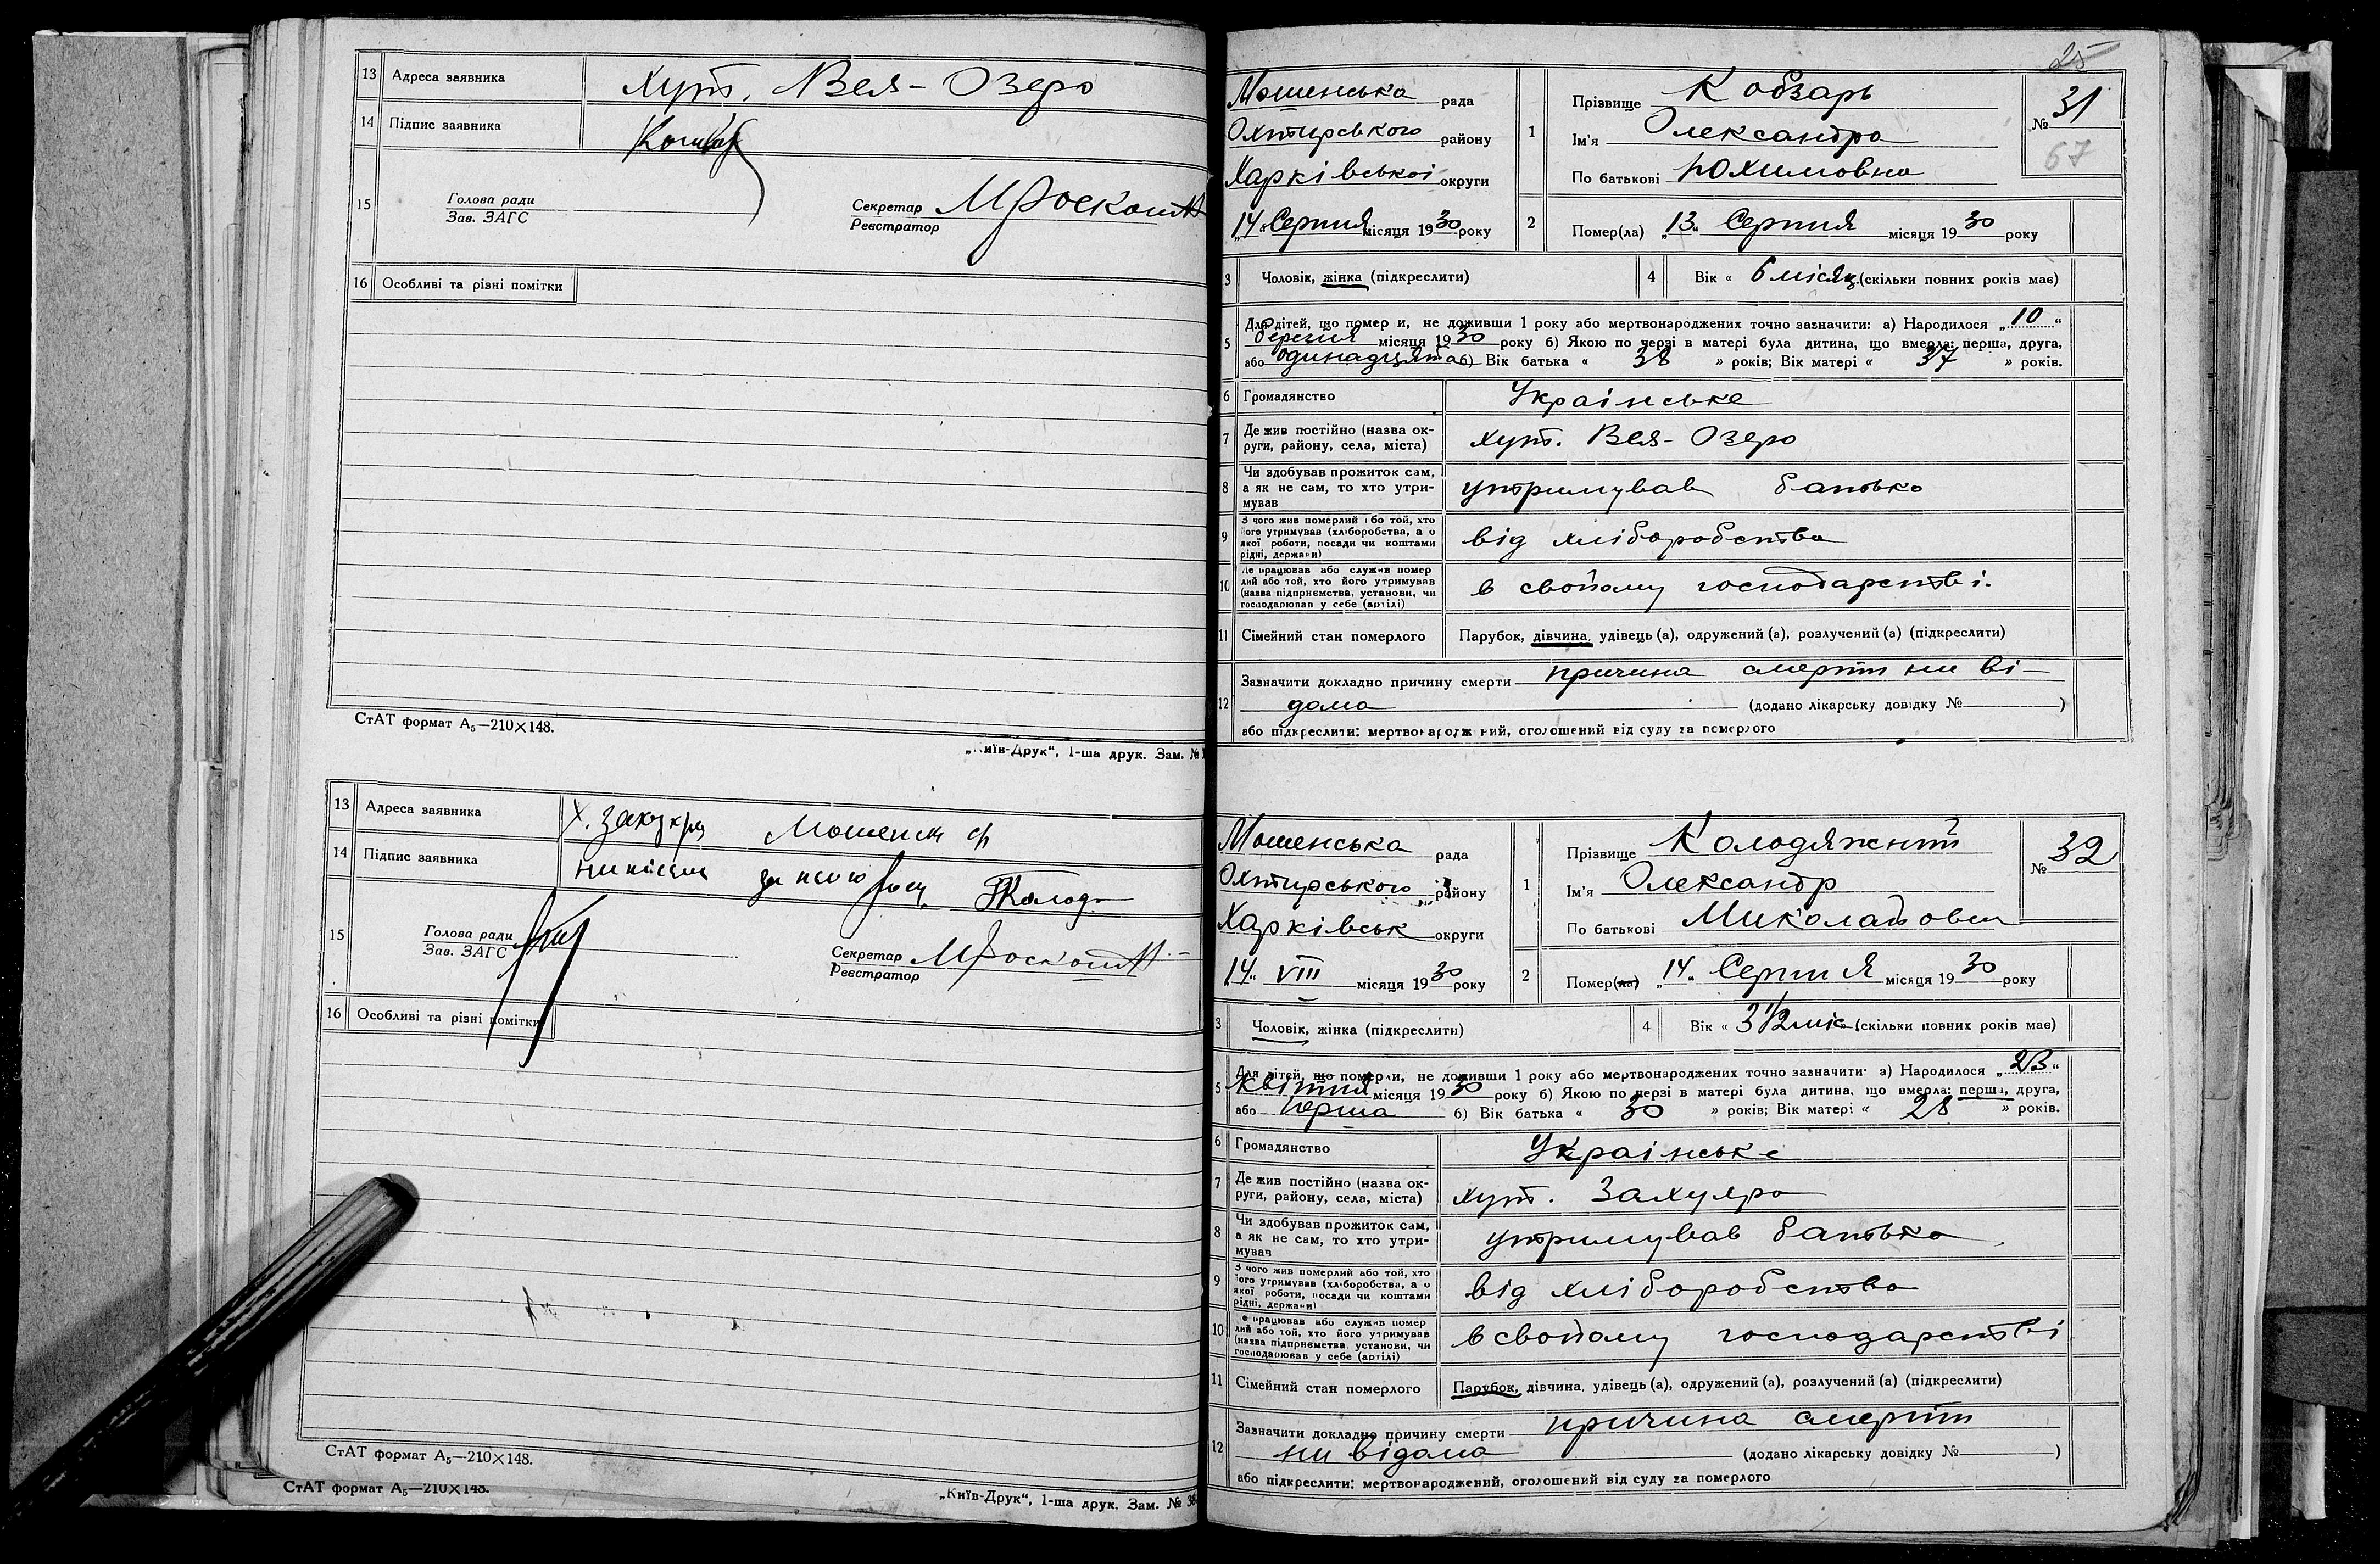 13 Адреса заявника хут. Вел-Озеро
14 Підпис заявника
15 Голова ради
Зав. ЗАГС
Секретар
Реєстратор
16 Особливі та різні помітки
СтАТ формат А5—210×148.
„Київ-Друк“, 1-ша друк. Зам. №
13 Адреса заявника
14 Підпис заявника
15 Голова ради
Зав. ЗАГС
Секретар
Реєстратор
16 Особливі та різні помітки
СтАТ формат А5—210×148.
СтАТ формат А5—210×148.
„Київ-Друк“, 1-ша друк. Зам. № 38
25
Мошенська рада
Охтирського району
Харківської округи
„14“ Серпня місяця 1930 року
1 Прізвище Кобзарь
Ім'я Олександра
По батькові Юхимовна
№ 31
67
2 Помер(ла) „13“ Серпня місяця 1930 року
3 Чоловік, жінка (підкреслити)
4 Вік « 6 місяц. (скільки повних років має)
5 Для дітей, що померли, не доживши 1 року або мертвонароджених точно зазначити: а) Народилося „10“
березня місяця 1930 року б) Якою по черзі в матері була дитина, що вмерла: перша, друга,
або одинадцята б) Вік батька « 38 » років; Вік матері « 37 » років.
6 Громадянство Українське
7 Де жив постійно (назва ок-
руги, району, села, міста) хут. Вел-Озеро
8 Чи здобував прожиток сам,
а як не сам, то хто утри-
мував утримував батько
9 З чого жив померлий або той, хто
його утримував (хліборобства, а о
якої роботи, посади чи коштами
рідні, держави) від хліборобства
10 Де працював або служив помер
лий або той, хто його утримував
(назва підприємства, установи, чи
господарював у себе (артілі) в свойому господарстві.
11 Сімейний стан померлого Парубок, дівчина, удівець(а), одружений(а), розлучений(а) (підкреслити)
12 Зазначити докладно причину смерти причина смерти не ві-
дома (додано лікарську довідку № )
або підкреслити: мертвонароджений, оголошений від суду за померлого
Мошенська рада
Охтирського району
Харківськ округи
„14“ VIII місяця 1930 року
1 Прізвище Колодяжний
Ім'я Олександр
По батькові Миколайович
№ 32
2 Помер(ла) „14“ Серпня місяця 1930 року
3 Чоловік, жінка (підкреслити)
4 Вік « 3 1/2 міс (скільки повних років має)
5 Для дітей, що померли, не доживши 1 року або мертвонароджених точно зазначити: а) Народилося „23“
Квітня місяця 1930 року б) Якою по черзі в матері була дитина, що вмерла: перша, друга,
або перша б) Вік батька « 30 » років; Вік матері « 28 » років.
6 Громадянство Українське
7 Де жив постійно (назва ок-
руги, району, села, міста) хут.
8 Чи здобував прожиток сам,
а як не сам, то хто утри-
мував утримував батько
9 З чого жив померлий або той, хто
його утримував (хліборобства, а о
якої роботи, посади чи коштами
рідні, держави) від хліборобства
10 Де працював або служив помер
лий або той, хто його утримував
(назва підприємства, установи, чи
господарював у себе (артілі) в свойому господарстві
11 Сімейний стан померлого Парубок, дівчина, удівець(а), одружений(а), розлучений(а) (підкреслити)
12 Зазначити докладно причину смерти причина смерти
не відома (додано лікарську довідку № )
або підкреслити: мертвонароджений, оголошений від суду за померлого